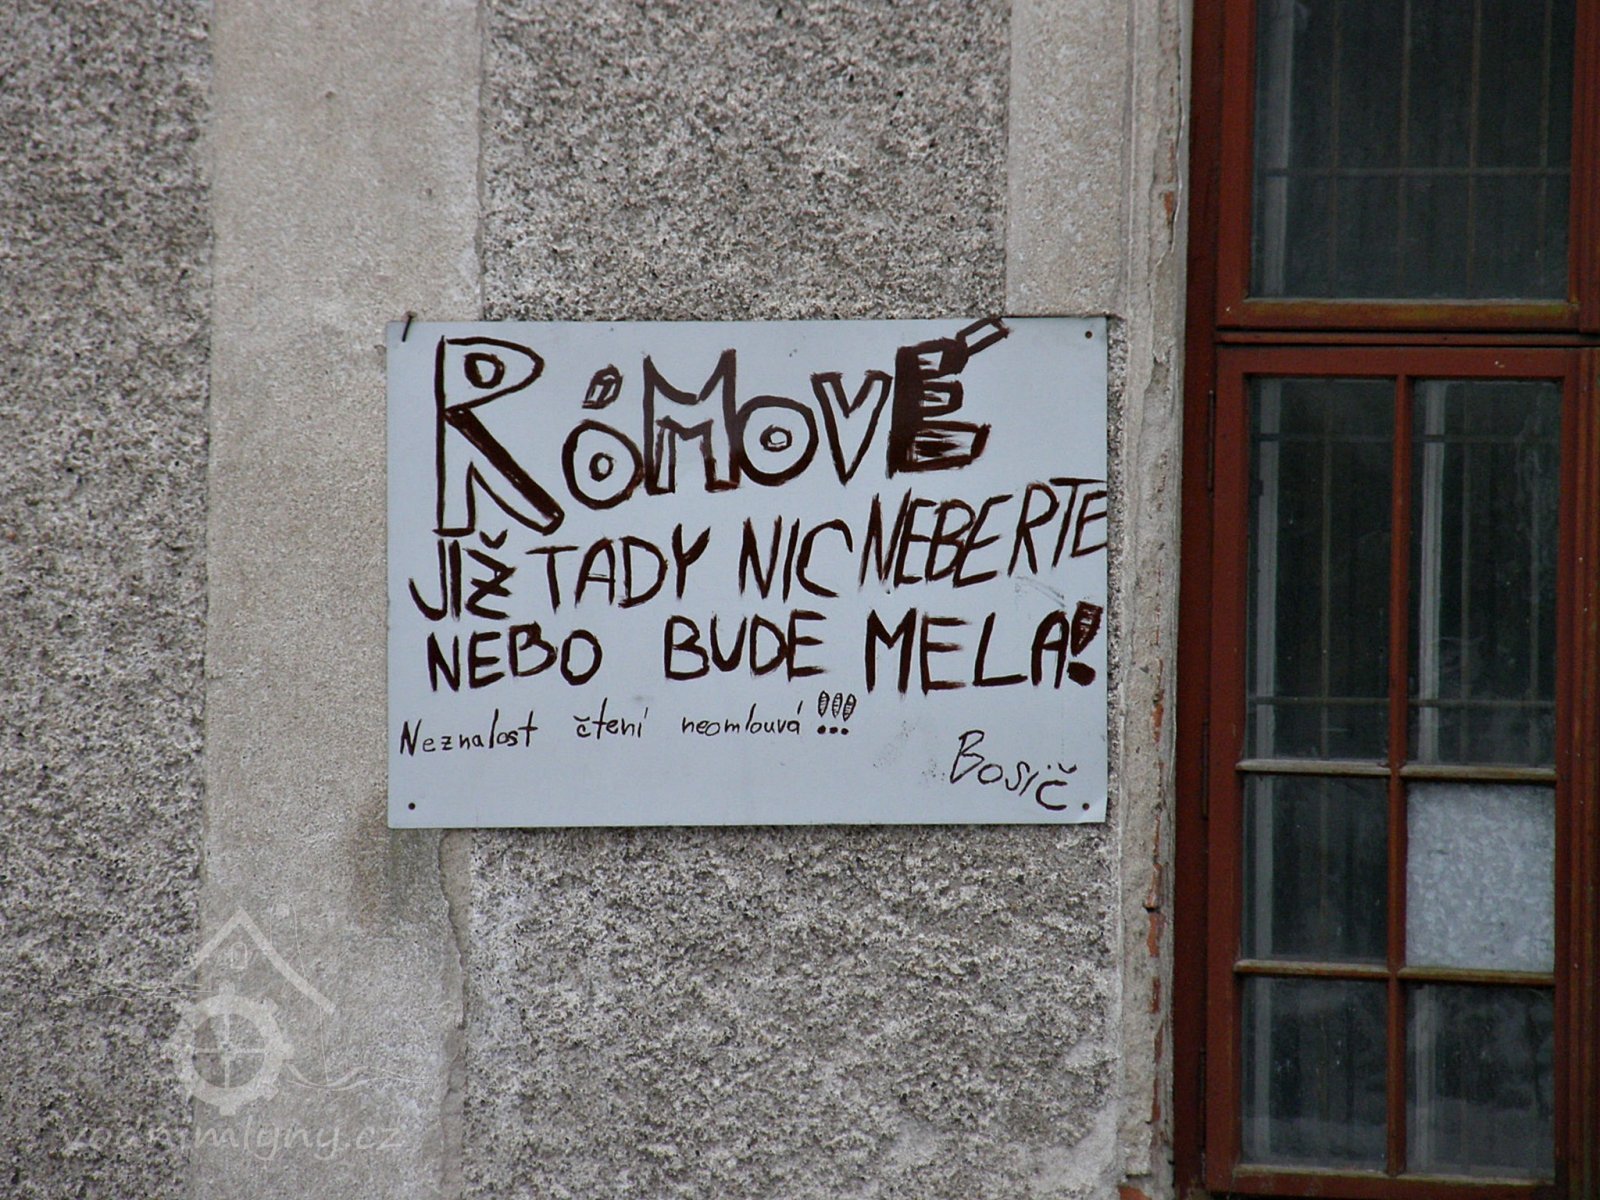 RÓMOVÉ
JIŽ TADY NIC NEBERTE
NEBO BUDE MELA!
Neznalost čtení neomlouvá !!!
Bosič.
vodnimlyny.cz